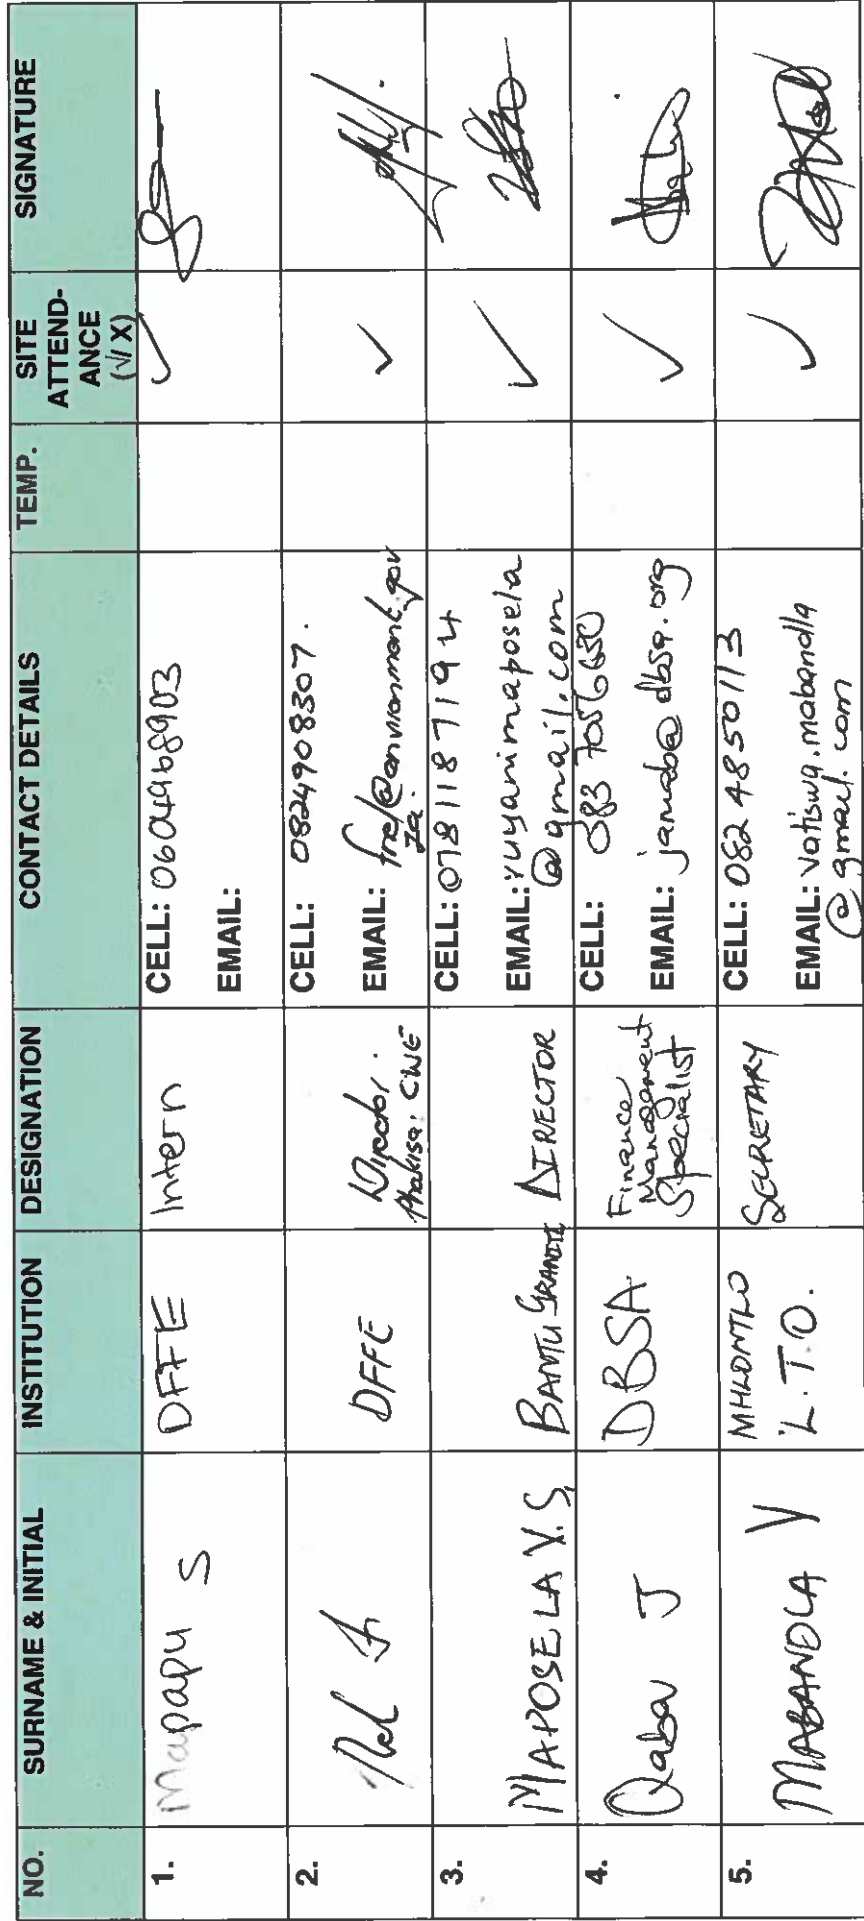 NO. SURNAME & INITIAL INSTITUTION DESIGNATION CONTACT DETAILS TEMP. SITE ATTEND-ANCE (√/ X) SIGNATURE
1. Mapapu S DFFE Intern CELL: 0604968903
EMAIL:
2. Nel DFFE Director: Phakisa: CWE CELL: 0824908307.
EMAIL: fnel@environment.gov
za.
3. MAPOSELA V.S. BANTU GRANITE DIRECTOR CELL: 0781187194
EMAIL: vuyanimaposela
@gmail.com
4. Qaba J DBSA Finance Management Specialist CELL: 083 7056650
EMAIL: janab@dbsa.org
5. MABANDLA V MHLONTLO L.T.O. SECRETARY CELL: 082 4850113
EMAIL: vatiswa.mabandla
@gmail.com